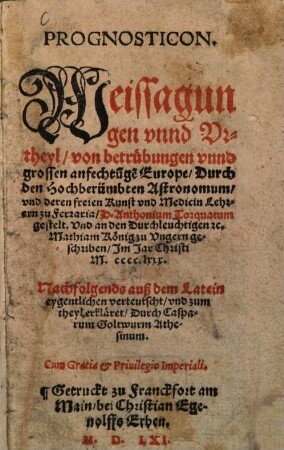 PROGNOSTICON.
Weissagun
gen vnnd Vr-
theyl / von betrübungen vnnd
grossen anfechtũgẽ Europe / Durch
den Hochberümbten Astronomum /
vnd deren freien Kunst vnd Medicin Leh-
rern zu Ferraria / D. Anthonium Torquatum
gestelt. Vnd an den Durchleuchtigen ꝛc.
Mathiam König zu Vngern ge-
schriben / Im Jar Christi
M. cccc. lxxx.
Nachfolgends auß dem Latein
eygentlichen verteutscht / vnd zum
theyl erkläret / Durch Caspa-
rum Goltwurm Athe-
sinum.
Cum Gratia & Priuilegio Imperiali.
¶ Getruckt zu Franckfort am
Main / bei Christian Ege-
nolffs Erben.
M. D. LXI.